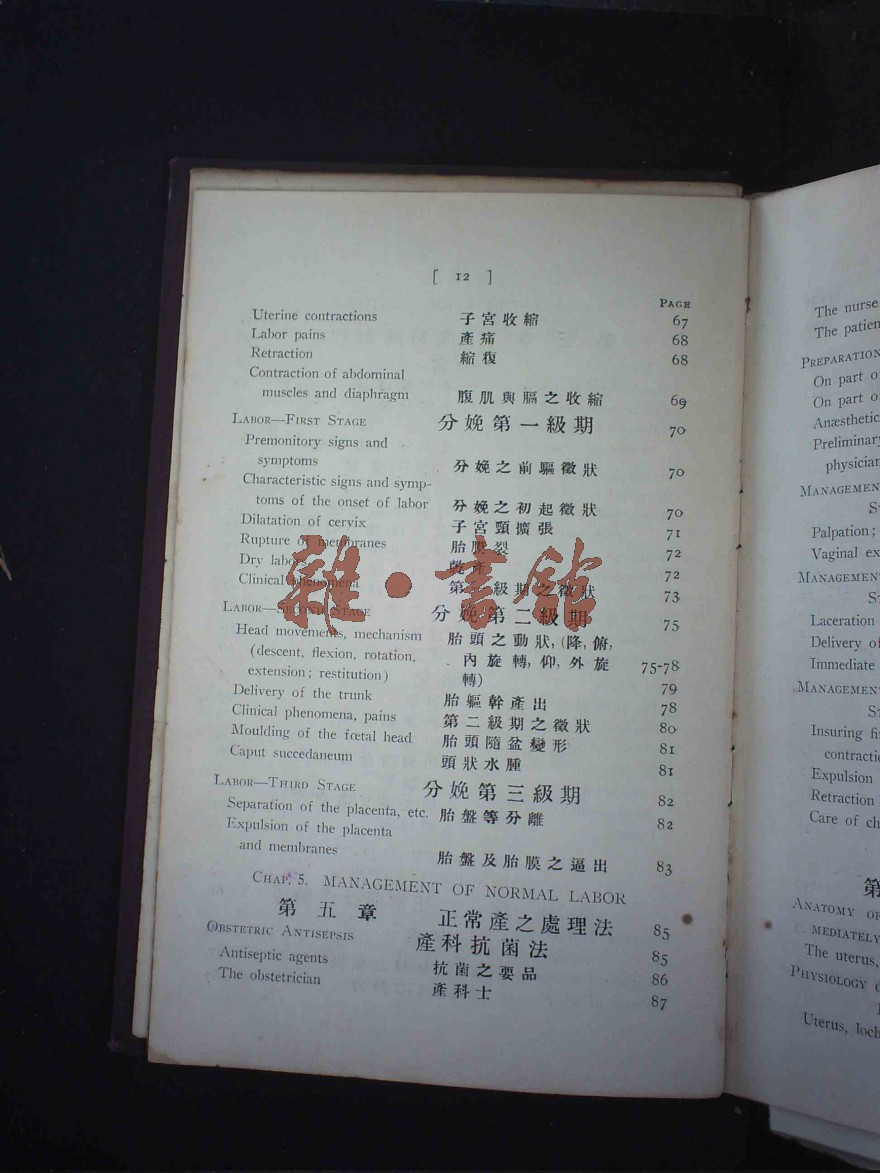 [ 12 ]
PAGE
Uterine contractions 子宮收縮 67
Labor pains 產痛 68
Retraction 縮復 68
Contraction of abdominal
muscles and diaphragm 腹肌與膈之收縮 69
LABOR—FIRST STAGE 分娩第一級期 70
Premonitory signs and
symptoms 分娩之前驅徵狀 70
Characteristic signs and symp-
toms of the onset of labor 分娩之初起徵狀 70
Dilatation of cervix 子宮頸擴張 71
Rupture of membranes 胎膜裂 72
Dry labors 72
Clinical phenomena 第一級期之徵狀 73
LABOR—SECOND STAGE 分娩第二級期 75
Head movements, mechanism 胎頭之動狀,(降,俯,
(descent, flexion, rotation, 內旋轉,仰,外旋 75-78
extension; restitution) 轉) 79
Delivery of the trunk 胎軀幹產出 78
Clinical phenomena, pains 第二級期之徵狀 80
Moulding of the fœtal head 胎頭隨盆變形 81
Caput succedaneum 頭狀水腫 81
LABOR—THIRD STAGE 分娩第三級期 82
Separation of the placenta, etc. 胎盤等分離 82
Expulsion of the placenta
and membranes 胎盤及胎膜之逼出 83
CHAP. 5. MANAGEMENT OF NORMAL LABOR
第五章 正常產之處理法 85
OBSTETRIC ANTISEPSIS 產科抗菌法 85
Antiseptic agents 抗菌之要品 86
The obstetrician 產科士 87
雜·書館
The nurse
The patien
PREPARATION
On part o
On part o
Anæsthetic
Preliminary
physician
MANAGEMEN
ST
Palpation;
Vaginal ex
MANAGEMENT
ST
Laceration
Delivery of
Immediate
MANAGEMENT
ST
Insuring fi
contractio
Expulsion
Retraction
Care of ch
第
ANATOMY OF
MEDIATELY
The uterus,
PHYSIOLOGY O
Uterus, loch